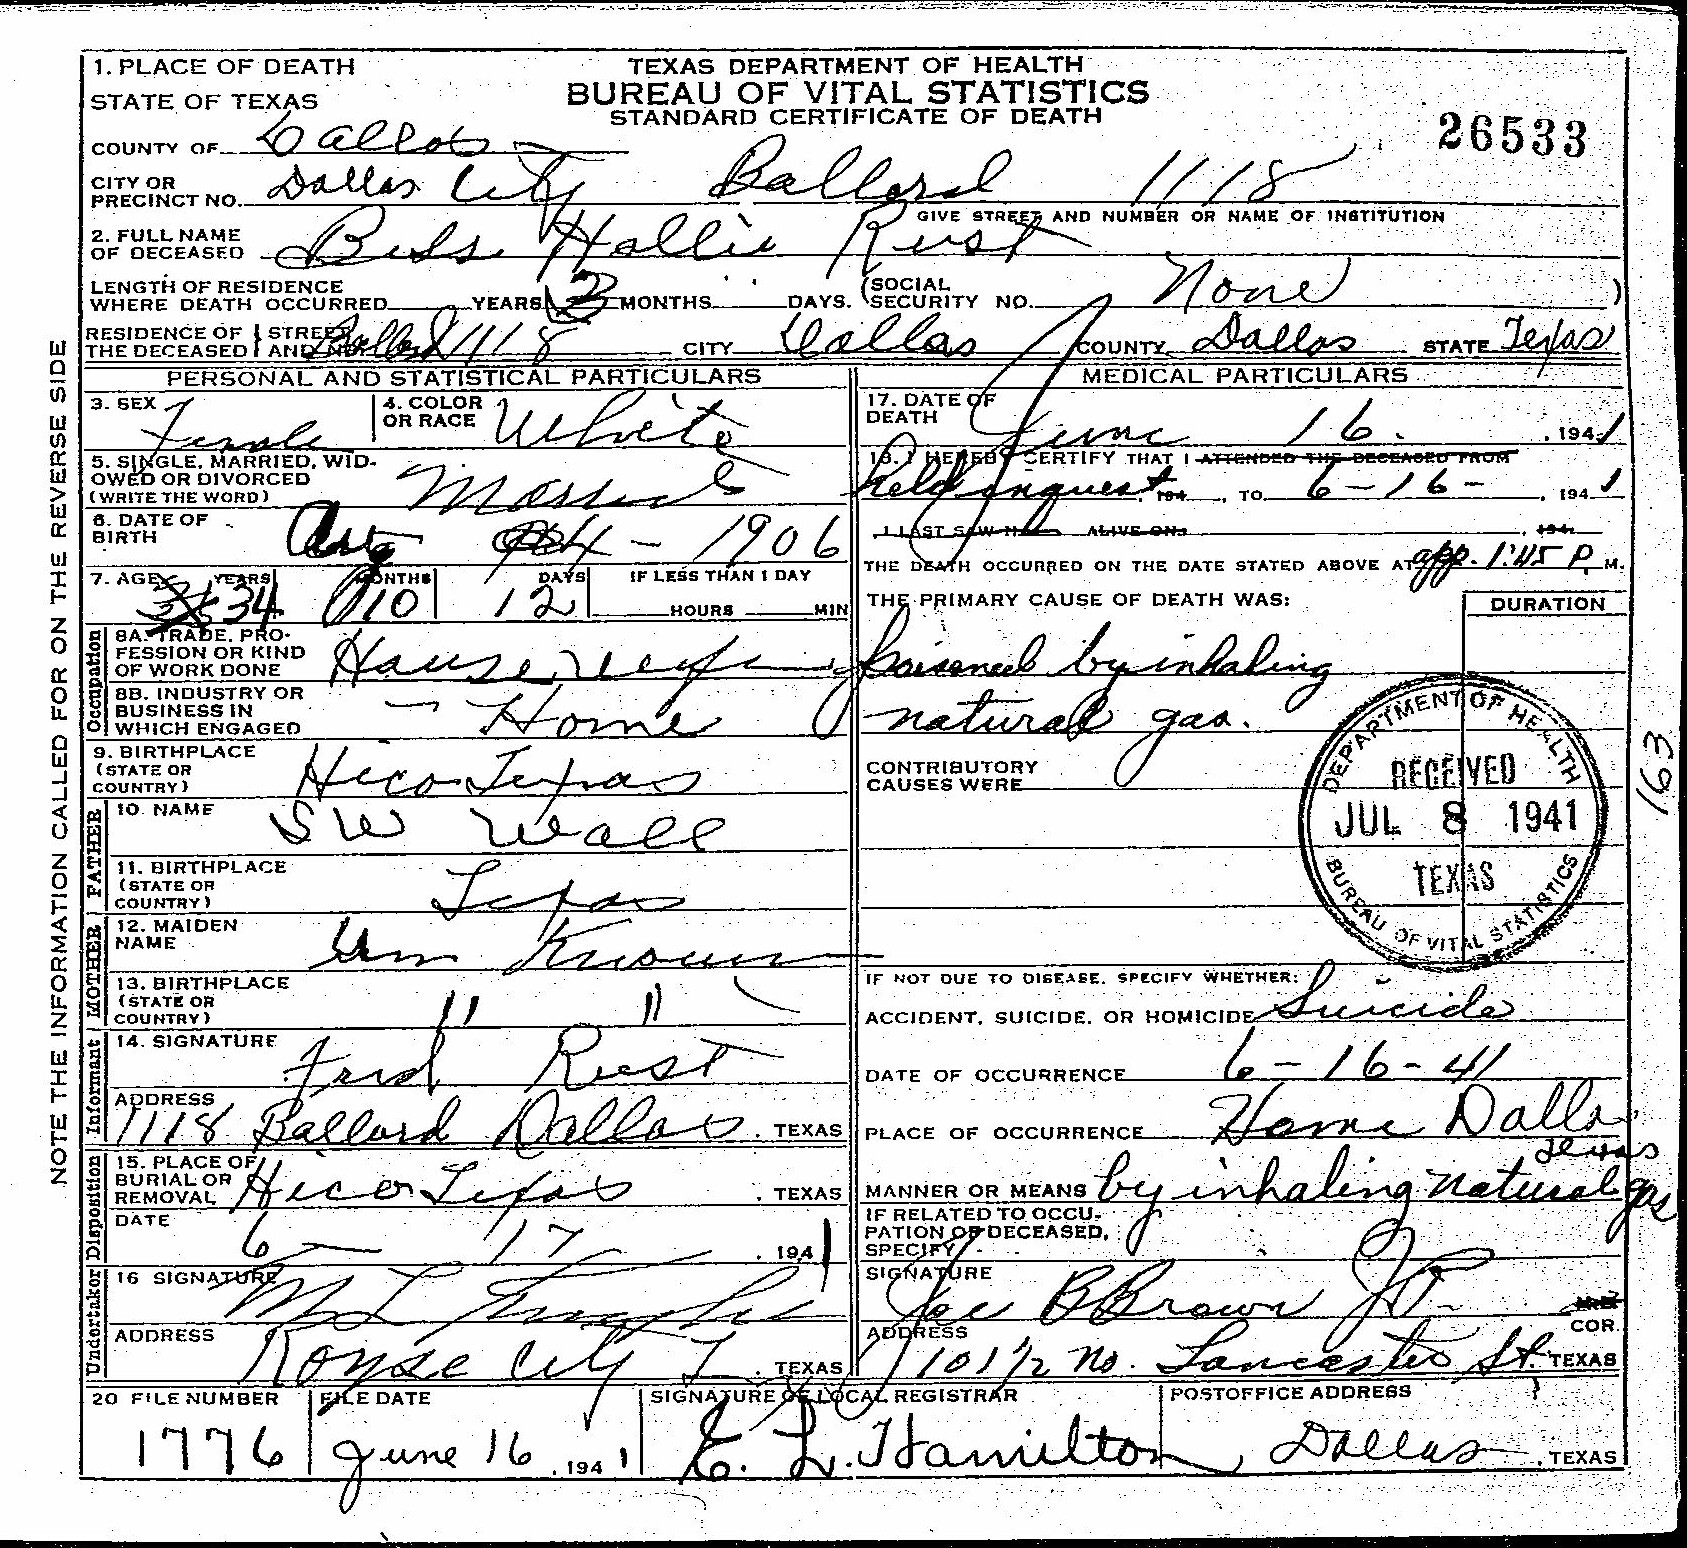 1. PLACE OF DEATH
STATE OF TEXAS
TEXAS DEPARTMENT OF HEALTH
BUREAU OF VITAL STATISTICS
STANDARD CERTIFICATE OF DEATH
26533
COUNTY OF Dallas
CITY OR PRECINCT NO. Dallas City Ballard 1118
GIVE STREET AND NUMBER OR NAME OF INSTITUTION
2. FULL NAME OF DECEASED Bess Hollie Rust
LENGTH OF RESIDENCE WHERE DEATH OCCURRED YEARS 3 MONTHS DAYS. (SOCIAL SECURITY NO. None )
RESIDENCE OF THE DECEASED STREET AND NO. Ballard 1118 CITY Dallas COUNTY Dallas STATE Texas
PERSONAL AND STATISTICAL PARTICULARS
3. SEX Female 4. COLOR OR RACE White
5. SINGLE, MARRIED, WIDOWED OR DIVORCED (WRITE THE WORD) Married
6. DATE OF BIRTH Aug 4 - 1906
7. AGE YEARS 34 MONTHS 10 DAYS 12 IF LESS THAN 1 DAY HOURS MIN
Occupation
8A. TRADE, PROFESSION OR KIND OF WORK DONE House wife
8B. INDUSTRY OR BUSINESS IN WHICH ENGAGED - Home
9. BIRTHPLACE (STATE OR COUNTRY) Hico Texas
FATHER
10. NAME S W Wall
11. BIRTHPLACE (STATE OR COUNTRY) Texas
MOTHER
12. MAIDEN NAME Un Known
13. BIRTHPLACE (STATE OR COUNTRY) " "
Informant
14. SIGNATURE Fred Rust
ADDRESS 1118 Ballard Dallas. TEXAS
Disposition
15. PLACE OF BURIAL OR REMOVAL Hico Texas. TEXAS
DATE 6 - 17, 1941
Undertaker
16 SIGNATURE M L
ADDRESS Royse City T. TEXAS
MEDICAL PARTICULARS
17. DATE OF DEATH June 16. , 1941
18. I HEREBY CERTIFY THAT I ATTENDED THE DECEASED FROM
held inquest, 194 , TO 6-16- , 1941
I LAST SAW H ALIVE ON , 194
THE DEATH OCCURRED ON THE DATE STATED ABOVE AT app. 1:45 P. M.
THE PRIMARY CAUSE OF DEATH WAS: DURATION
poisoned by inhaling
natural gas.
CONTRIBUTORY CAUSES WERE
DEPARTMENT OF HEALTH
RECEIVED
JUL 8 1941
TEXAS
BUREAU OF VITAL STATISTICS
163
IF NOT DUE TO DISEASE, SPECIFY WHETHER:
ACCIDENT, SUICIDE, OR HOMICIDE Suicide
DATE OF OCCURRENCE 6-16-41
PLACE OF OCCURRENCE Home Dallas Texas
MANNER OR MEANS by inhaling natural gas
IF RELATED TO OCCUPATION OF DECEASED, SPECIFY
SIGNATURE Joe B Brown J P COR.
ADDRESS 101½ No. Lancaster St. TEXAS
20 FILE NUMBER 1776
FILE DATE June 16, 1941
SIGNATURE OF LOCAL REGISTRAR E. L. Hamilton,
POSTOFFICE ADDRESS Dallas, TEXAS
NOTE THE INFORMATION CALLED FOR ON THE REVERSE SIDE